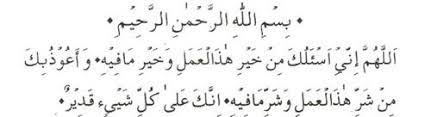 • بِسْمِ اللهِ الرَّحْمٰنِ الرَّحِيْمِ •
اَللّٰهُمَّ اِنِّيْ اَسْئَلُكَ مِنْ خَيْرِ هٰذَالْعَمَلِ وَخَيْرِ مَافِيْهِ• وَ اَعُوْذُبِكَ
مِنْ شَرِّ هٰذَالْعَمَلِ وَشَرِّمَافِيْهِ• اِنَّكَ عَلىٰ كُلِّ شَيْىءٍ قَدِيْرٌ•